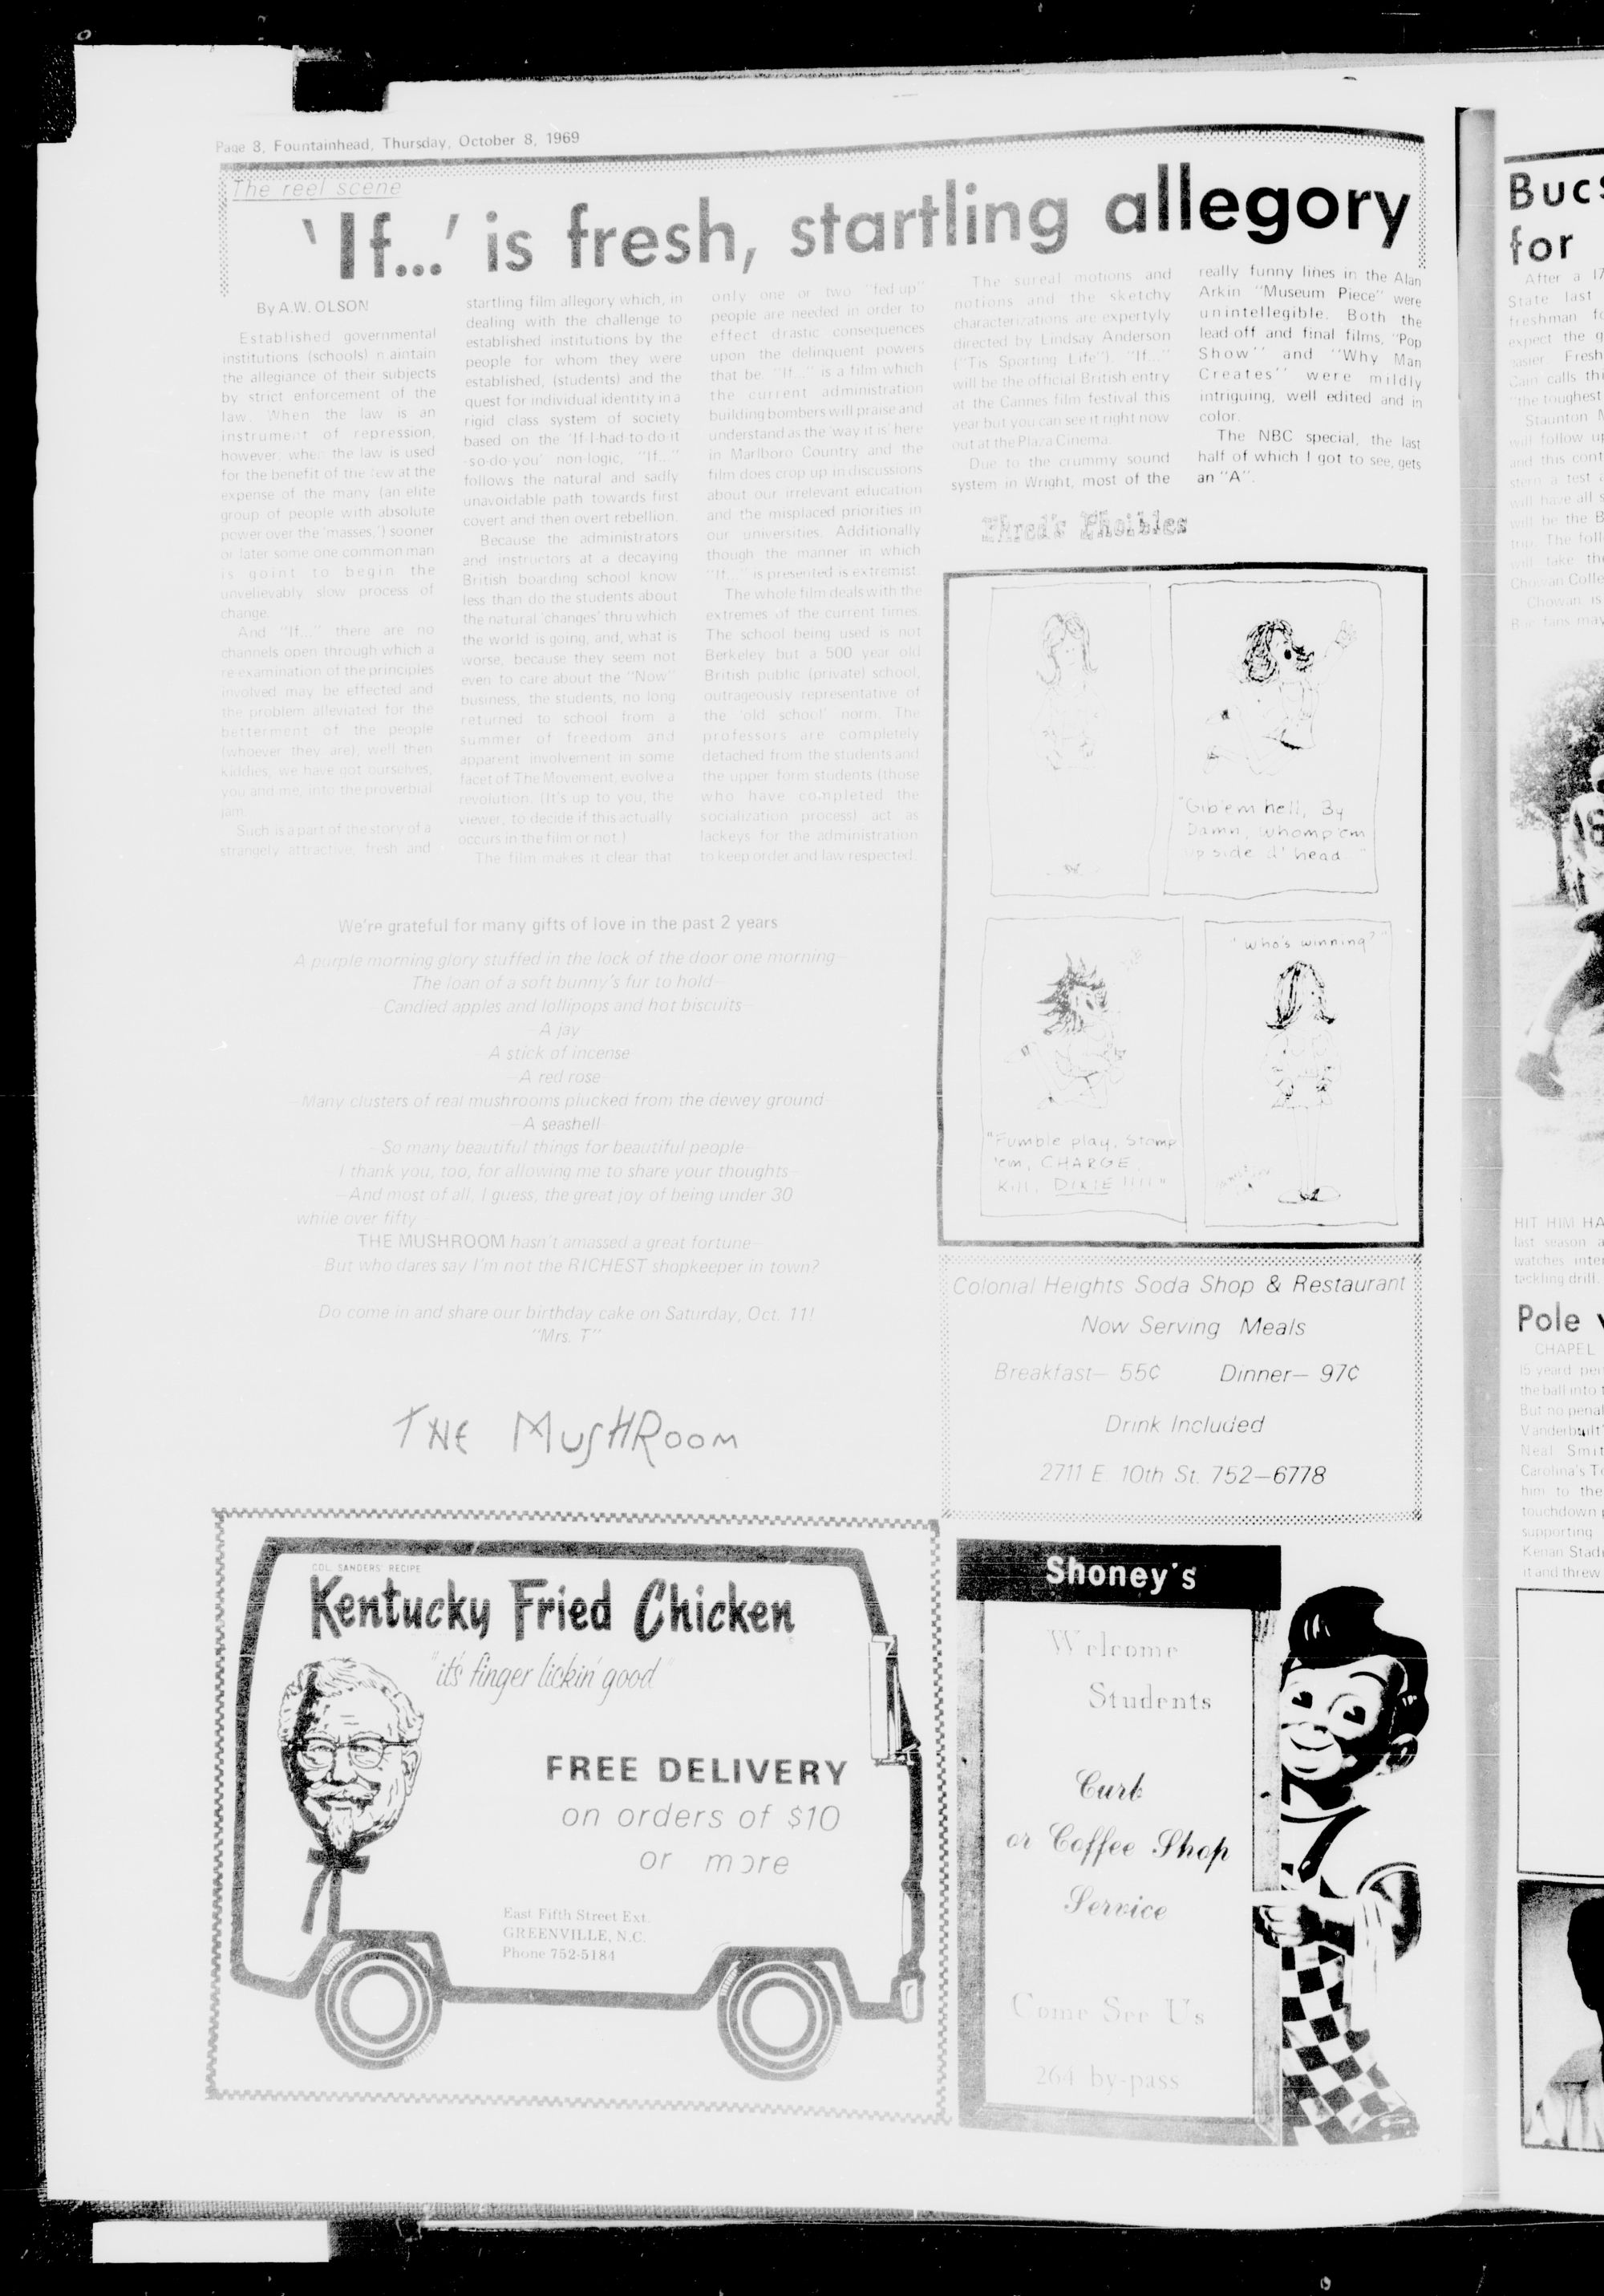 Page 8, Fountainhead, Thursday, October 8, 1969
The reel scene
'If...' is fresh, startling allegory
By A.W. OLSON
Established governmental
institutions (schools) maintain
the allegiance of their subjects
by strict enforcement of the
law. When the law is an
instrument of repression,
however, when the law is used
for the benefit of the few at the
expense of the many (an elite
group of people with absolute
power over the 'masses,') sooner
or later some one common man
is goint to begin the
unvelievably slow process of
change.
And "If..." there are no
channels open through which a
re examination of the principles
involved may be effected and
the problem alleviated for the
betterment of the people
(whoever they are), well then
kiddies, we have got ourselves,
you and me, into the proverbial
jam.
Such is a part of the story of a
strangely attractive, fresh and
startling film allegory which, in
dealing with the challenge to
established institutions by the
people for whom they were
established, (students) and the
quest for individual identity in a
rigid class system of society
based on the 'If-I-had-to-do-it
-so-do-you' non-logic, "If..."
follows the natural and sadly
unavoidable path towards first
covert and then overt rebellion.
Because the administrators
and instructors at a decaying
British boarding school know
less than do the students about
the natural 'changes' thru which
the world is going, and, what is
worse, because they seem not
even to care about the "Now"
business, the students, no long
returned to school from a
summer of freedom and
apparent involvement in some
facet of The Movement, evolve a
revolution. (It's up to you, the
viewer, to decide if this actually
occurs in the film or not.)
The film makes it clear that
only one or two "fed up"
people are needed in order to
effect drastic consequences
upon the delinquent powers
that be. "If..." is a film which
the current administration
building bombers will praise and
understand as the 'way it is' here
in Marlboro Country and the
film does crop up in discussions
about our irrelevant education
and the misplaced priorities in
our universities. Additionally
though the manner in which
"If..." is presented is extremist.
The whole film deals with the
extremes of the current times.
The school being used is not
Berkeley but a 500 year old
British public (private) school,
outrageously representative of
the 'old school' norm. The
professors are completely
detached from the students and
the upper form students (those
who have completed the
socialization process) act as
lackeys for the administration
to keep order and law respected.
The sureal motions and
notions and the sketchy
characterizations are expertyly
directed by Lindsay Anderson
("Tis Sporting Life"). "If..."
will be the official British entry
at the Cannes film festival this
year but you can see it right now
out at the Plaza Cinema.
Due to the crummy sound
system in Wright, most of the
really funny lines in the Alan
Arkin "Museum Piece" were
unintellegible. Both the
lead off and final films, "Pop
Show" and "Why Man
Creates" were mildly
intriguing, well edited and in
color.
The NBC special, the last
half of which I got to see, gets
an "A".
Fhred's Fhoibles
"Gib'em hell, By
Damn, whomp'em
up side d' head."
"Fumble play, Stomp
'em, CHARGE
Kill, DIXIE !!!!"
"Who's winning?"
We're grateful for many gifts of love in the past 2 years
A purple morning glory stuffed in the lock of the door one morning—
The loan of a soft bunny's fur to hold—
Candied apples and lollipops and hot biscuits—
—A jay
A stick of incense
—A red rose—
—Many clusters of real mushrooms plucked from the dewey ground—
—A seashell—
—So many beautiful things for beautiful people—
—I thank you, too, for allowing me to share your thoughts—
—And most of all, I guess, the great joy of being under 30
while over fifty—
THE MUSHROOM hasn't amassed a great fortune—
—But who dares say I'm not the RICHEST shopkeeper in town?
Do come in and share our birthday cake on Saturday, Oct. 11!
"Mrs. T"
THE MUSHROOM
Colonial Heights Soda Shop & Restaurant
Now Serving Meals
Breakfast— 55¢ Dinner— 97¢
Drink Included
2711 E. 10th St. 752—6778
COL. SANDERS' RECIPE
Kentucky Fried Chicken
"it's finger lickin' good"
FREE DELIVERY
on orders of $10
or more
East Fifth Street Ext.
GREENVILLE, N.C.
Phone 752-5184
Shoney's
Welcome
Students
Curb
or Coffee Shop
Service
Come See Us
264 by-pass
Bucs
for
After a 17
State last
freshman fo
expect the g
easier. Fresh
Cain calls thi
"the toughest
Staunton M
will follow up
and this cont
stern a test a
will have all s
will be the B
trip. The foll
will take the
Chowan Colle
Chowan is
Buc fans may
HIT HIM HA
last season a
watches inter
tackling drill.
Pole v
CHAPEL
15 yeard pen
the ball into t
But no penal
Vanderbuilt'
Neal Smit
Carolina's To
him to the
touchdown p
supporting
Kenan Stadi
it and threw